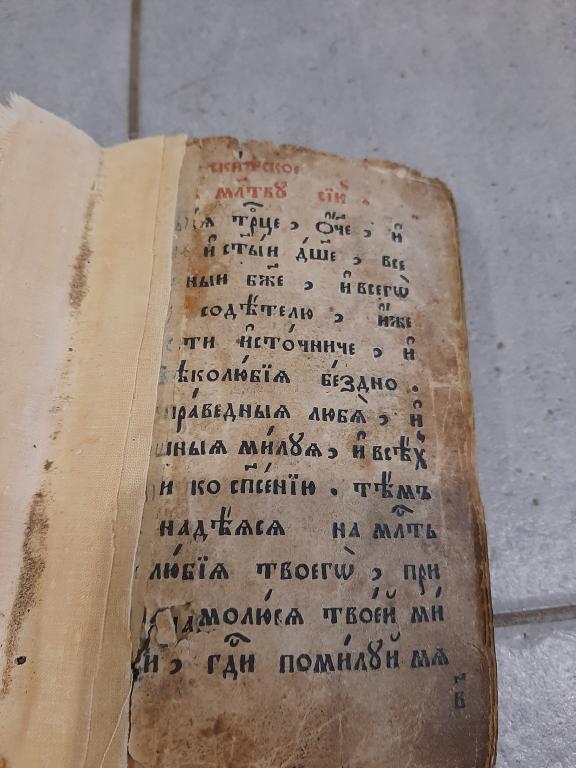 скитское
мл҃тву сїю̀ .
тр҃це , ѻ҆́ч҃е , и҆
и҆ ст҃ы́й дш҃е , все
ный бж҃е , и҆ всегѡ̀
содѣ́телю , и҆́же
сти и҆сто́чниче , и҆
вѣколю́бїѧ бе́здно .
пра́ведныѧ любѧ̀ , и҆
шныѧ ми́луѧ , и҆ всѣ́хъ
и ко сп҃се́нїю . тѣ́мъ
надѣ́ѧсѧ на мл҃ть
лю́бїѧ твоегѡ̀ , при
молю́сѧ твое́й ми
и , гд҃и поми́луй мѧ
в҃